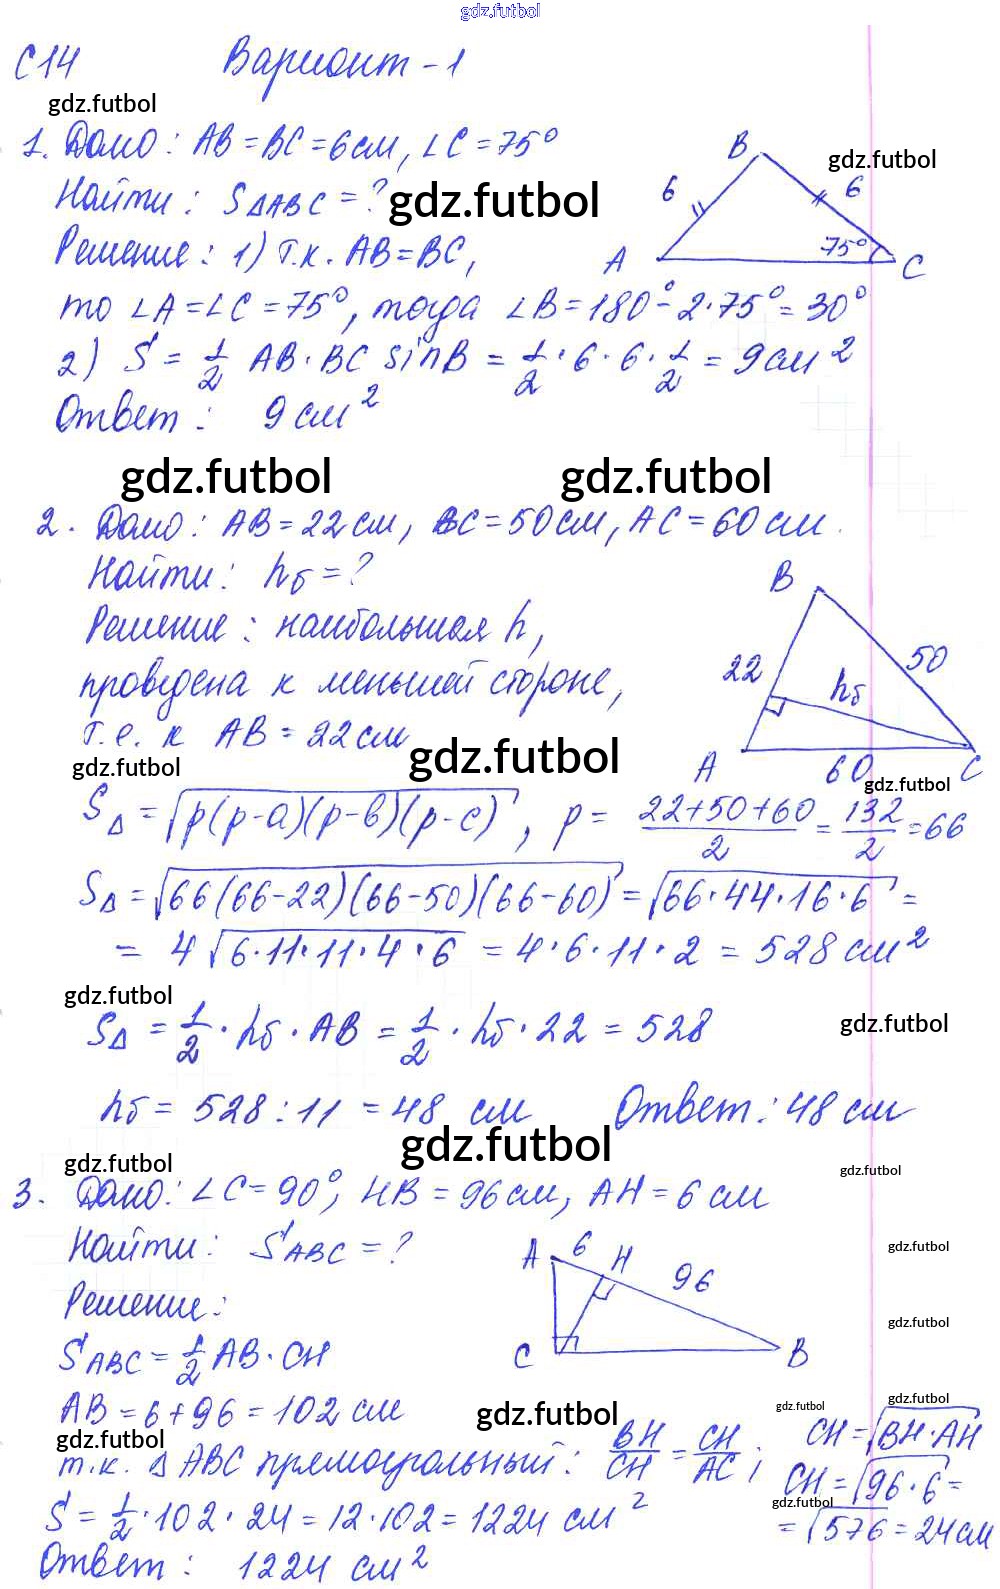 gdz.futbol
С14 Вариант-1
gdz.futbol
1. Дано: AB=BC=6см, ∠C=75°
B gdz.futbol
Найти: S△ABC=? gdz.futbol 6 6
Решение: 1) т.к. AB=BC, A 75° C
то ∠A=∠C=75°, тогда ∠B=180°-2·75°=30°
2) S = 1/2 AB·BC sinB = 1/2·6·6·1/2 = 9см²
Ответ: 9см²
gdz.futbol gdz.futbol
2. Дано: AB=22см, BC=50см, AC=60см.
Найти: hб=? B
Решение: наибольшая h,
22 50 hб
проведена к меньшей стороне,
т.е. к AB=22см gdz.futbol
gdz.futbol A 60 C gdz.futbol
S△=√p(p-a)(p-b)(p-c), p= (22+50+60)/2 = 132/2 =66
S△=√66(66-22)(66-50)(66-60) = √66·44·16·6 =
= 4√6·11·11·4·6 = 4·6·11·2 = 528см²
gdz.futbol
S△ = 1/2·hб·AB = 1/2·hб·22 = 528 gdz.futbol
hб= 528:11 =48 см Ответ: 48см
gdz.futbol
gdz.futbol gdz.futbol
3. Дано: ∠C=90°, HB=96см, AH=6см
Найти: SABC=? A 6 H 96 gdz.futbol
Решение: gdz.futbol
SABC=1/2 AB·CH C B
AB=6+96=102см gdz.futbol gdz.futbol gdz.futbol
gdz.futbol
т.к. △ABC прямоугольный: BH/CH = CH/AC; CH=√BH·AH
CH=√96·6=
gdz.futbol
S=1/2·102·24=12·102=1224 см² =√576=24см
Ответ: 1224 см²